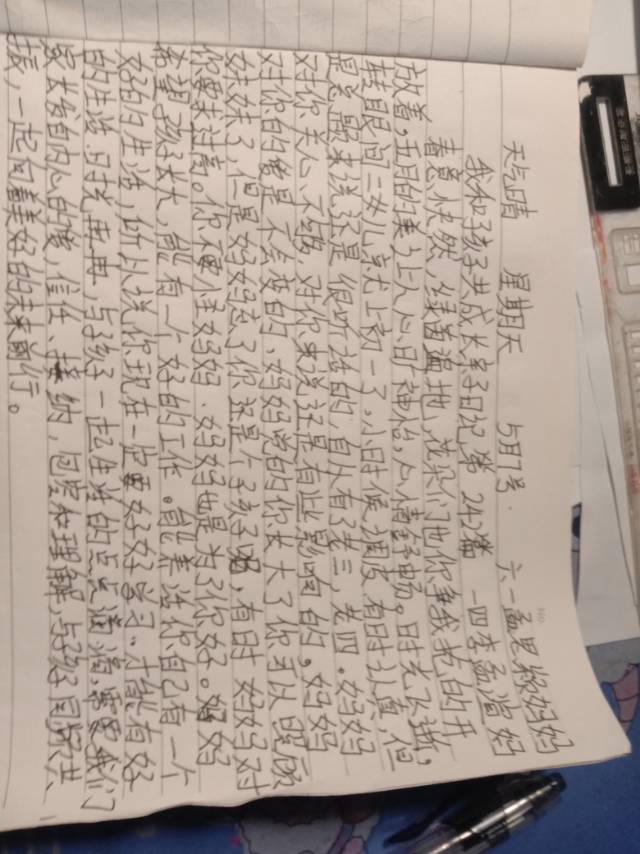 天气晴 星期天 5月7号. 六一孟思颖妈妈
我和孩子共成长亲子日记第242篇 一四李孟滢妈
春意快然,绿茵遍地,花朵们也你争我抢的开
放着,五月的美让人心旷神怡,心情舒畅。时光飞逝,
转眼间二女儿就上初一了。小时候调皮有时认真,但
是总歸来说还是很听话的,自从有了老三,老四。妈妈
对你关心不够,对你来说还是有些影响的。妈妈
对你的爱是不会变的、妈妈觉的你长大了你可以照顾
妹妹了,但是妈妈忘了你还是个孩子呢,有时妈妈对
你要求过高。你不要怪妈妈.妈妈也是为了你好。妈妈
希望孩子长大,能有一个好的工作。能养活你自己有一个
好的的生活,所以说你现在一定要好好学习、才能有好
的生活.时光再再,与孩子一起生活的点点滴滴、需要我们
家长发自内心的爱,信任、接纳,包容和理解,与孩子同频共
振,一起向着美好的未来前行。